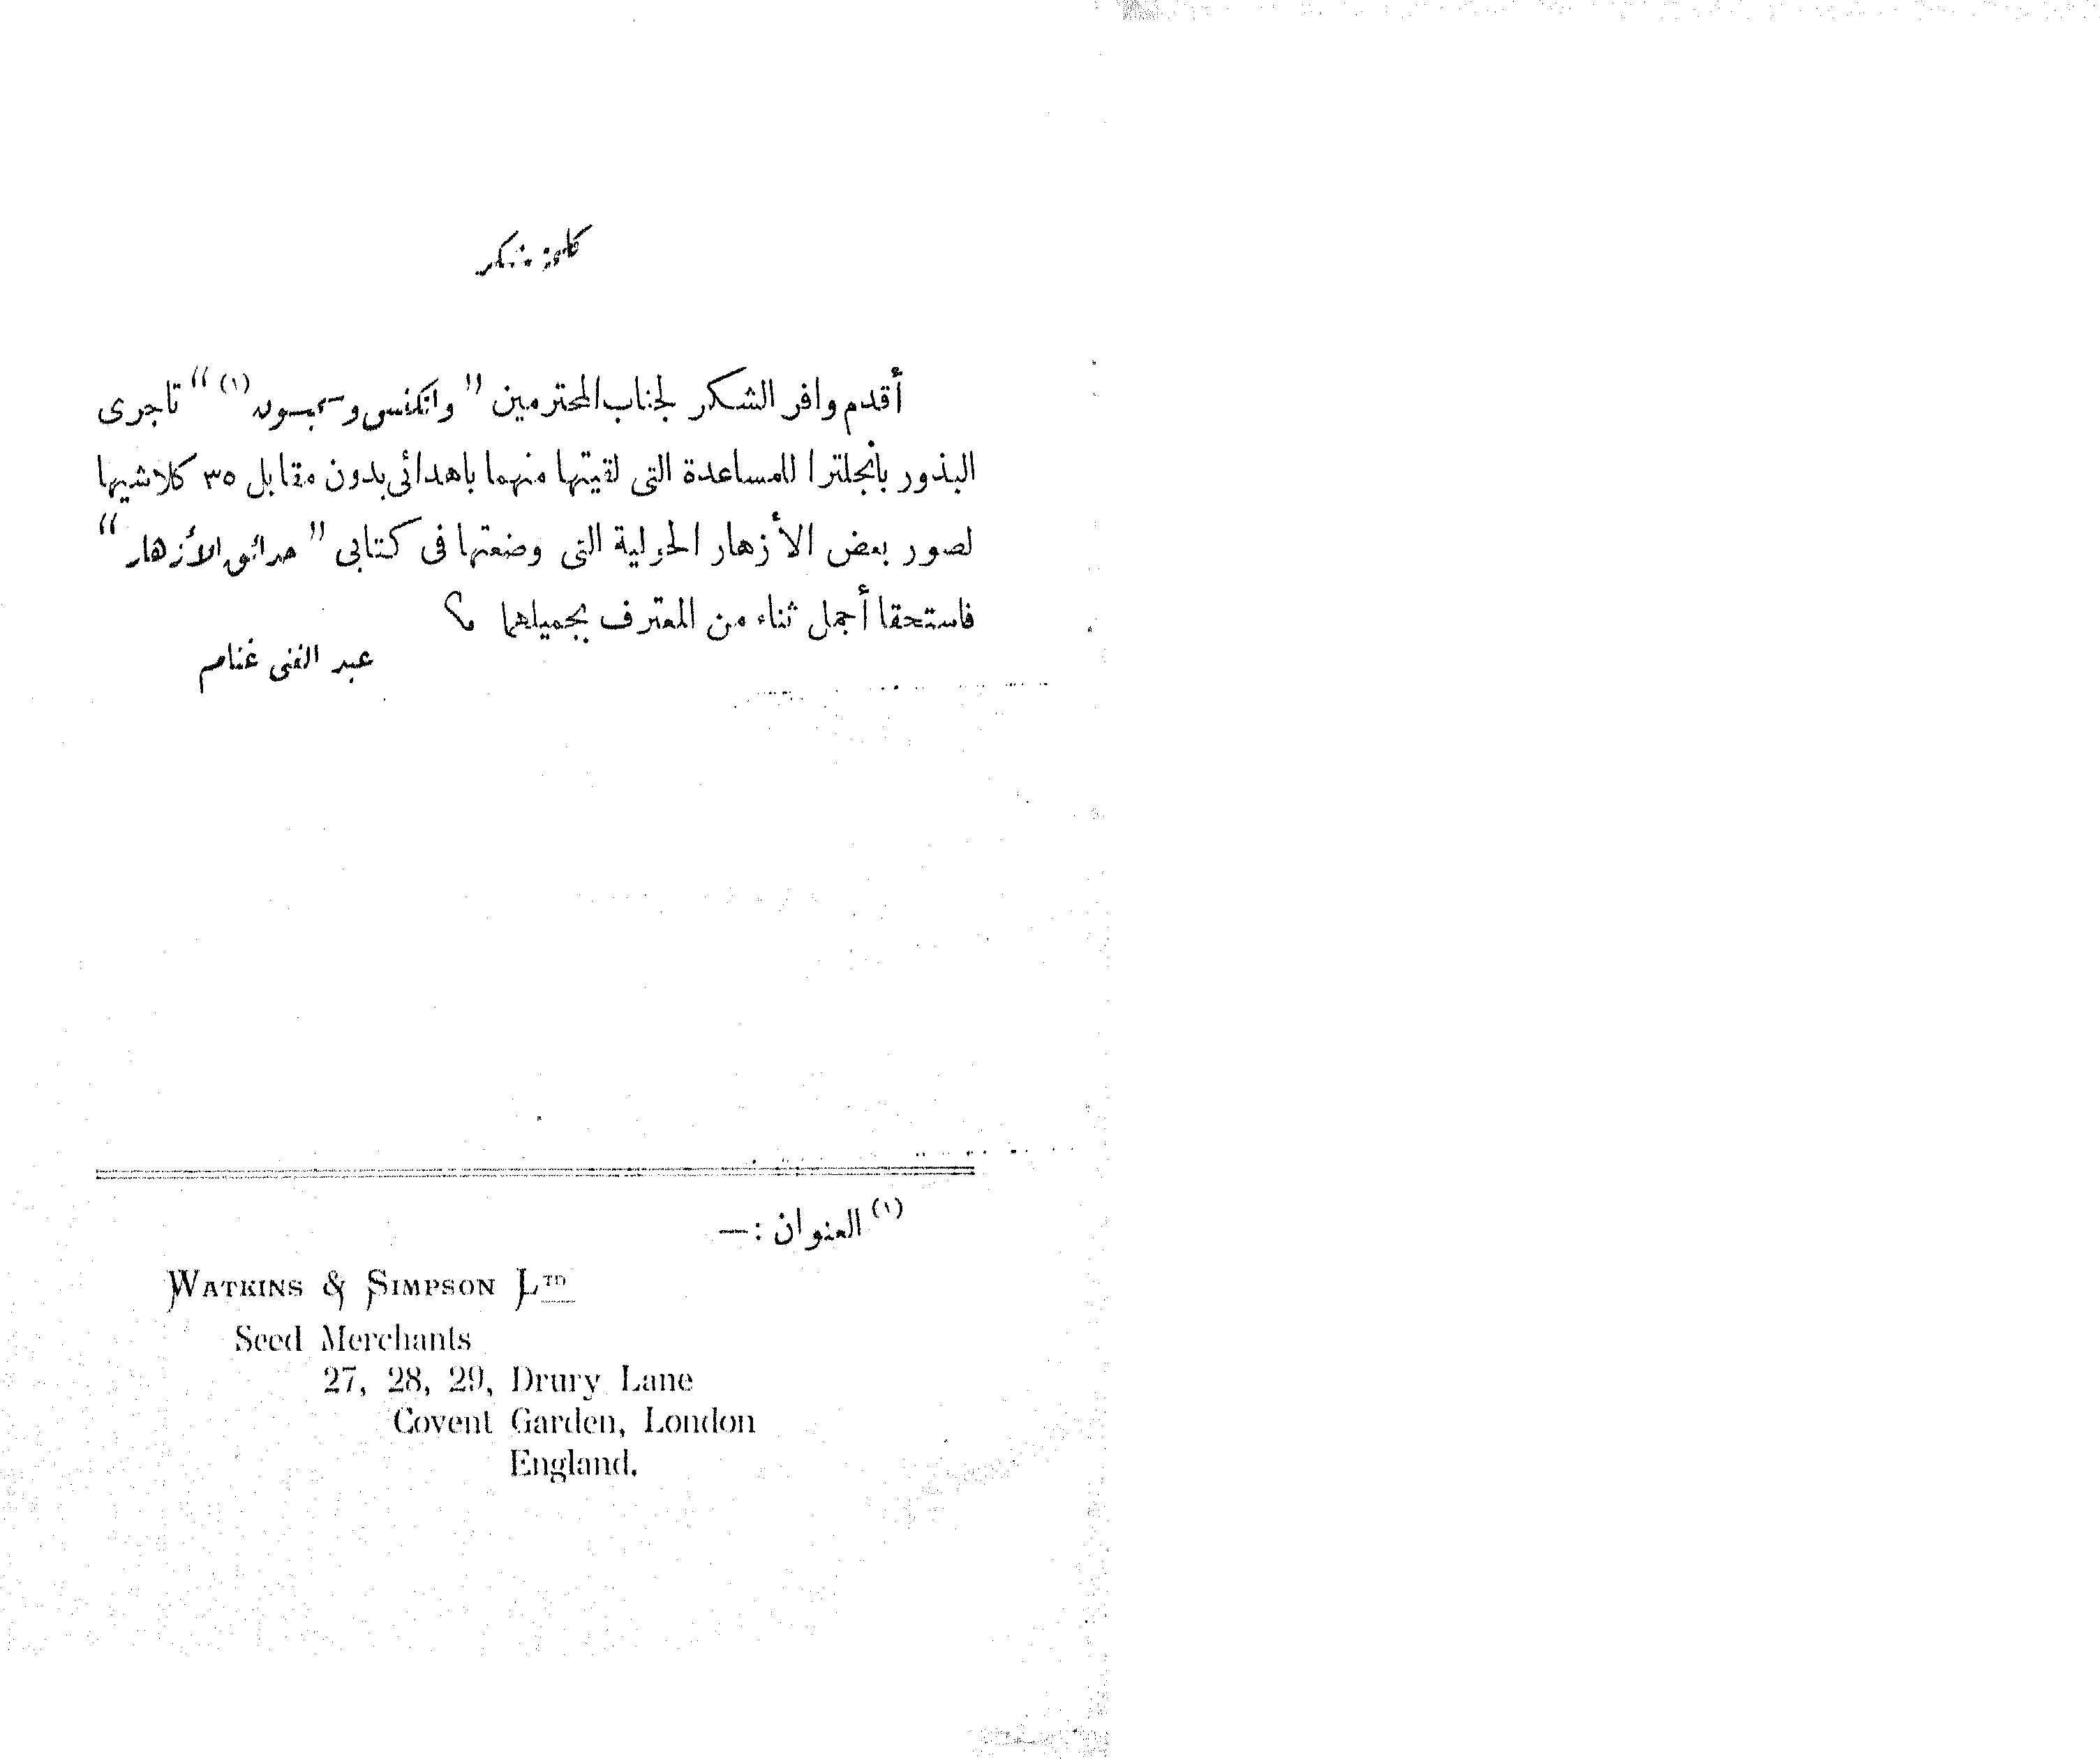 كلمة شكر
أقدم وافر الشكر لجناب المحترمين "واتكنس وسمبسون(١)" تاجرى
البذور بانجلترا للمساعدة التى لقيتها منهما باهدائى بدون مقابل ٣٥ كلاشيها
لصور بعض الأزهار الحولية التى وضعتها فى كتابى "حدائق الأزهار"
فاستحقا أجمل ثناء من المعترف بجميلهما
عبد الغنى غنام
(١) العنوان :—
WATKINS & SIMPSON LTD
Seed Merchants
27, 28, 29, Drury Lane
Covent Garden, London
England.